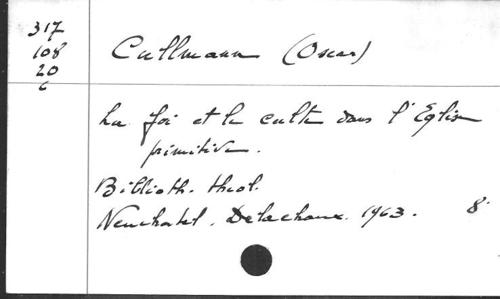 317
108
20
c
Cullmann (Oscar)
La foi et le culte dans l'Eglise
primitive.
Biblioth. theol.
Neuchatel. Delachaux. 1963. 8°